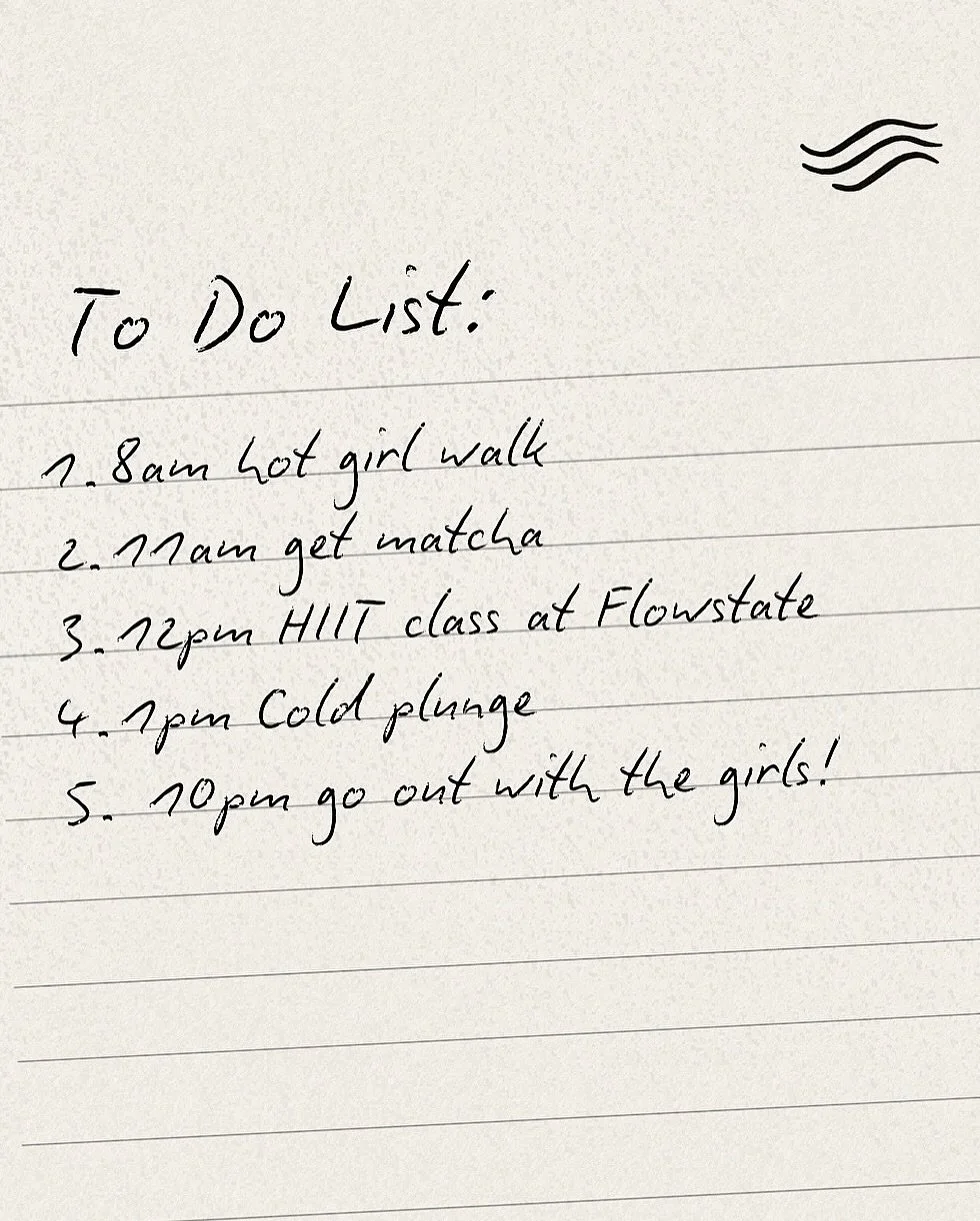 To Do List:
1. 8am hot girl walk
2. 11am get matcha
3. 12pm HIIT class at Flowstate
4. 1pm Cold plunge
5. 10pm go out with the girls!